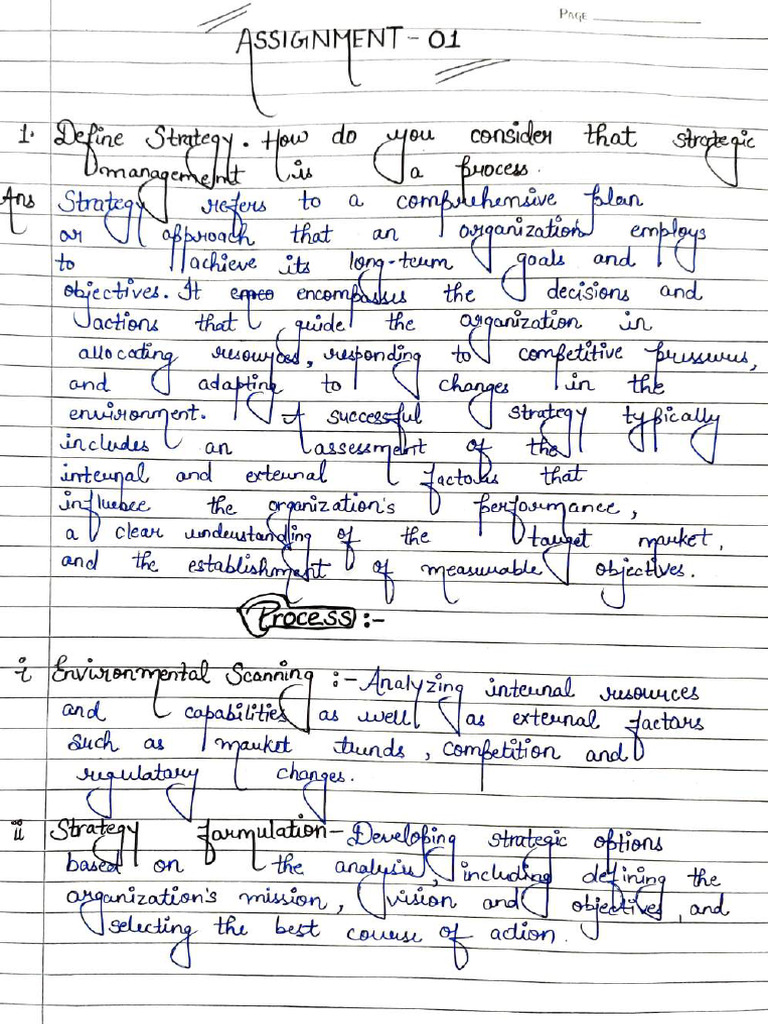 PAGE
ASSIGNMENT - 01
1. Define Strategy. How do you consider that strategic
management is a process.
Ans Strategy refers to a comprehensive plan
or approach that an organization employs
to achieve its long-term goals and
objectives. It emco encompasses the decisions and
actions that guide the organization in
allocating resources, responding to competitive pressures,
and adapting to changes in the
environment. A successful strategy typically
includes an assessment of the
internal and external factors that
influence the organization's performance,
a clear understanding of the target market,
and the establishment of measurable objectives.
Process :-
i Environmental Scanning :- Analyzing internal resources
and capabilities as well as external factors
such as market trends, competition and
regulatory changes.
ii Strategy formulation - Developing strategic options
based on the analysis, including defining the
organization's mission, vision and objectives, and
selecting the best course of action.